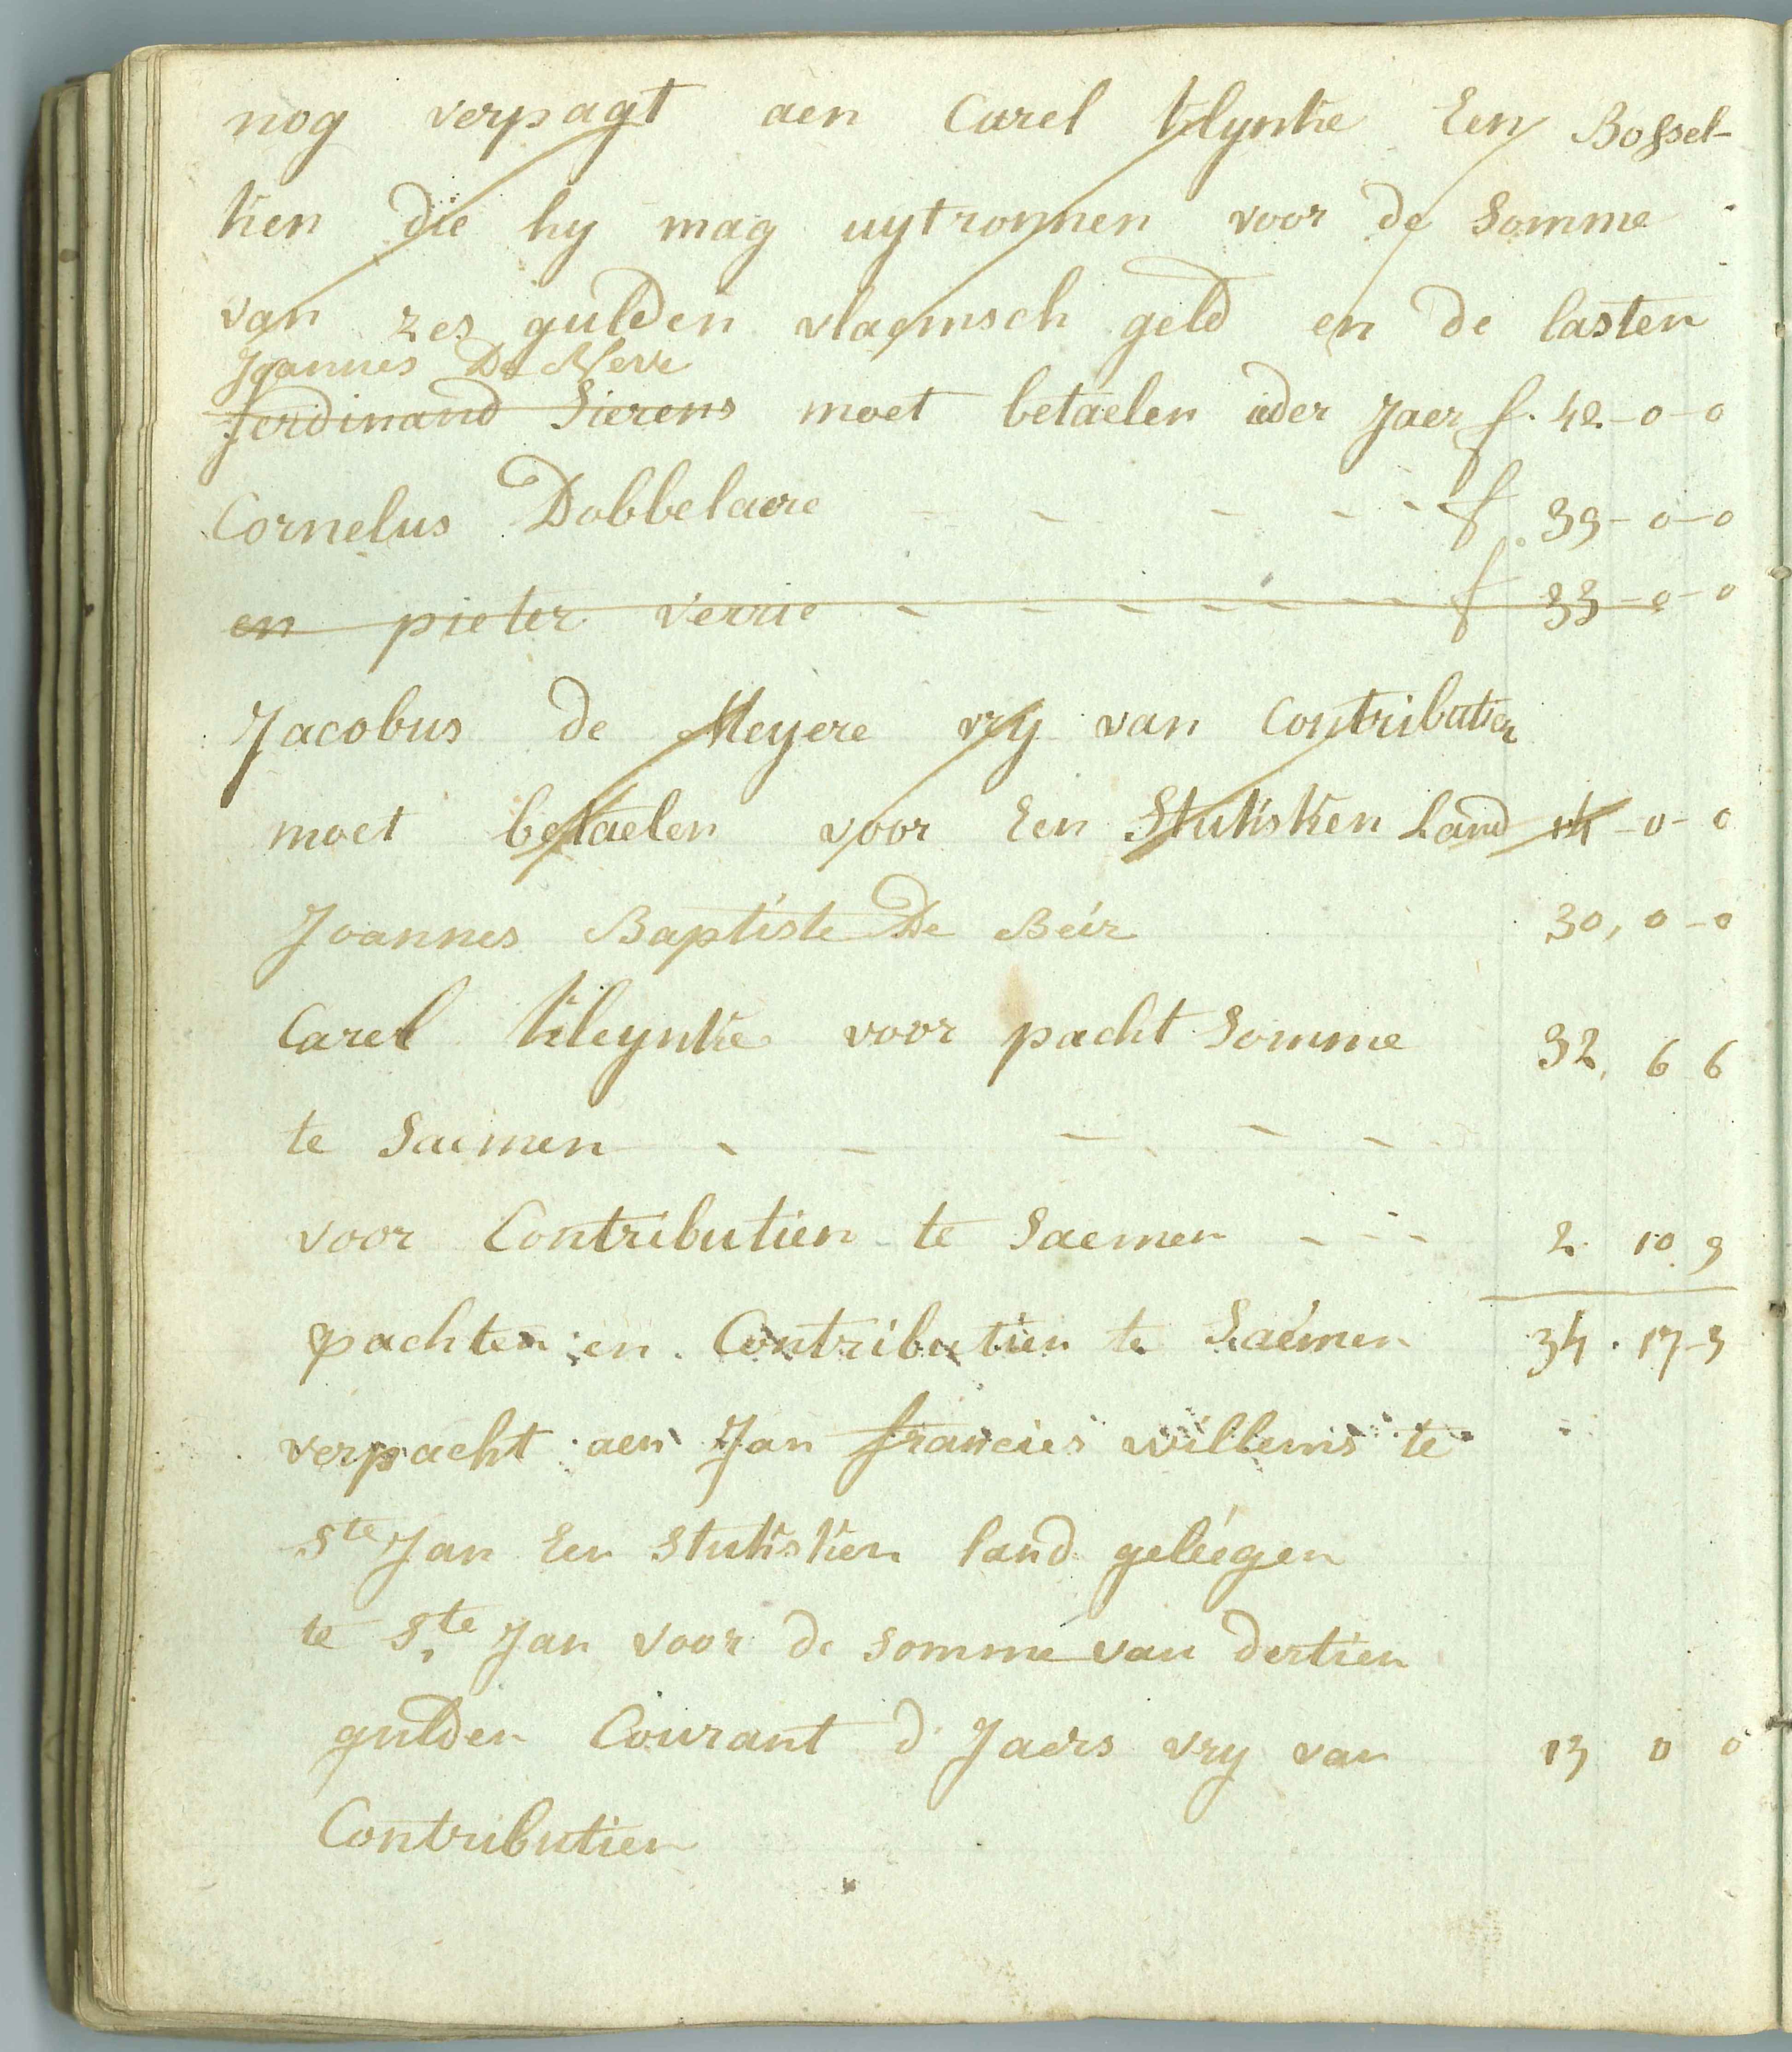 nog verpagt aen Carel Klynke Een Bossel-
ken die hy mag uytronnen voor de somme
van zes gulden vlaemsch geld en de lasten
Joannes De Neve
ferdinand Sierens moet betaelen ider Jaer f. 42-0-0
Cornelus Dobbelaere - - - - - f. 39-0-0
en pieter verrie - - - - - - - f 33-0-0
Jacobus de Meyere vry van Contributien
moet betaelen voor Een Stuksken Land 14-0-0
Joannes Baptiste De Beir 30,0-0
Carel Kleynke voor pacht Somme 32, 6 6
te Saemen - - - - - -
voor Contributien te Saemen - - - 2. 10. 9
pachten en Contributien te Saemen 34. 17-3
verpacht aen Jan francies willems te
Ste Jan Een stuksken land geleegen
te Ste Jan voor de somme van dertien
gulden Courant d Jaers vry van 13 0 0
Contributien